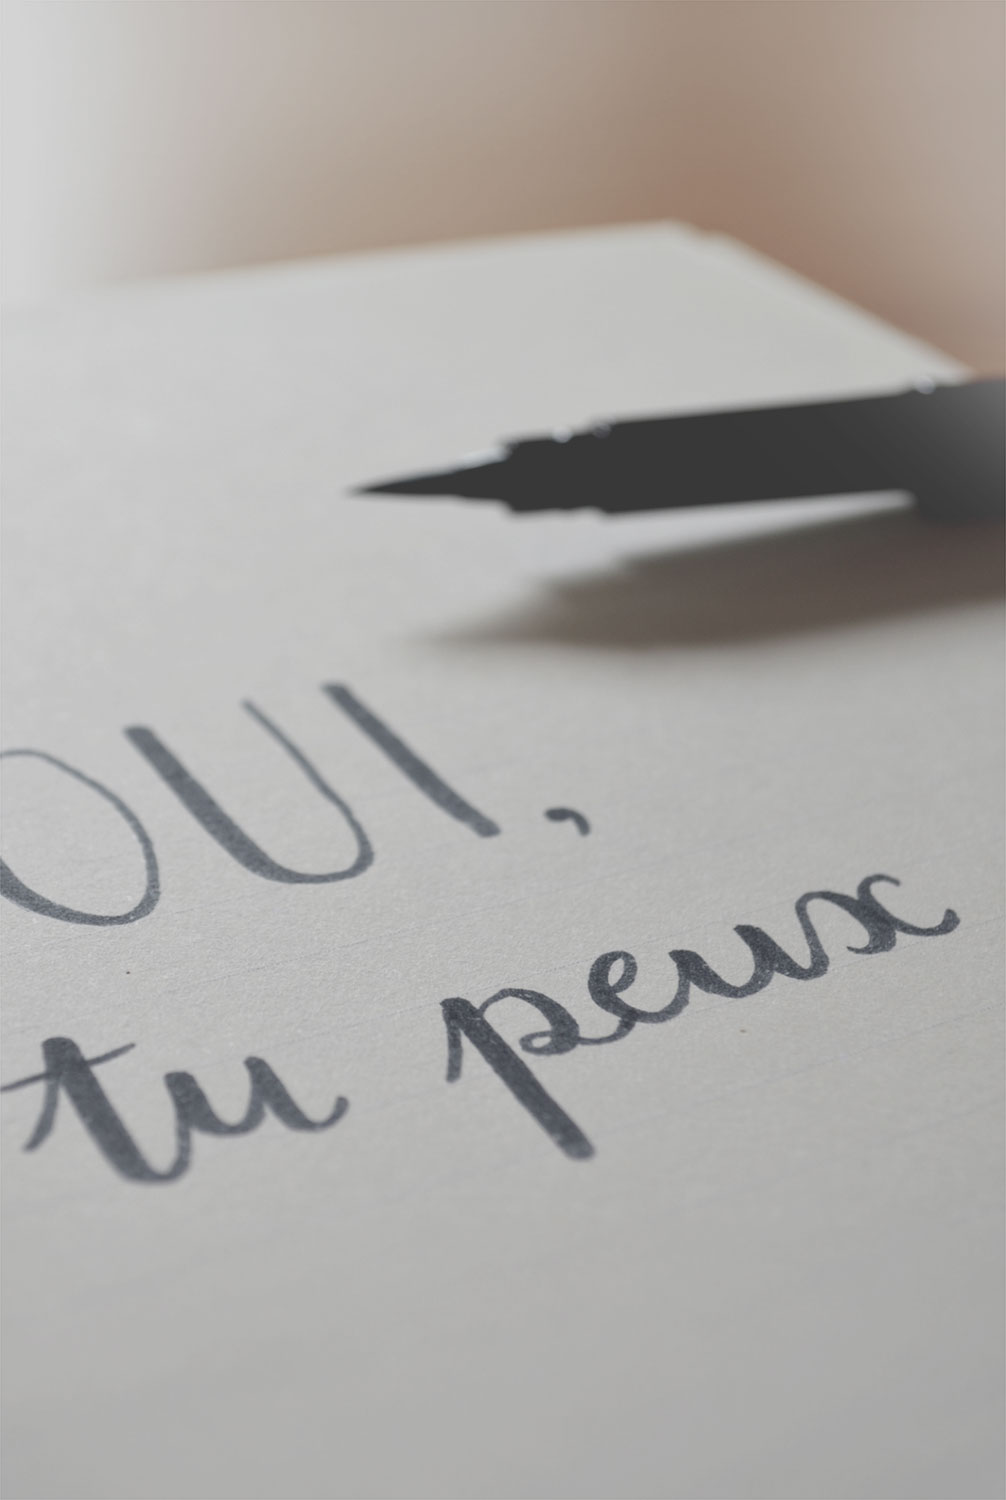 OUI,
tu peux